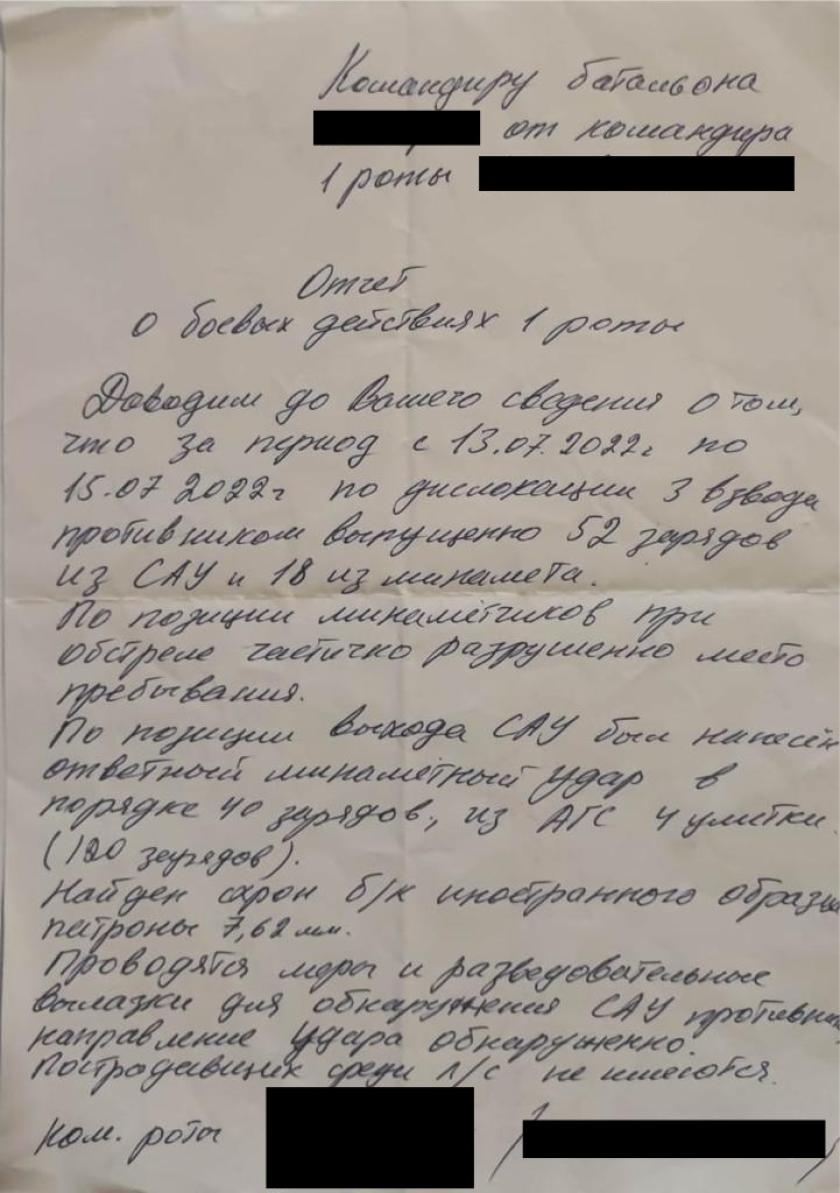 Командиру батальона
от командира
1 роты
Отчет
о боевых действиях 1 роты
Доводим до Вашего сведения о том,
что за период с 13.07.2022г по
15.07 2022г по дислокации 3 взвода
противником выпущенно 52 зарядов
из САУ и 18 из минамета.
По позиции минаметчиков при
обстреле частично разрушенно место
пребывания.
По позиции выхода САУ был нанесён
ответный минаметный удар в
порядке 40 зарядов, из АГС 4 улитки.
(120 зарядов).
Найден схрон б/к иностранного образца
патроны 7,62 мм.
Проводятся меры и разведовательные
вылазки для обнаружения САУ противни
направление удара обнаруженно.
Пострадавших среди л/с не имеются.
Ком. роты